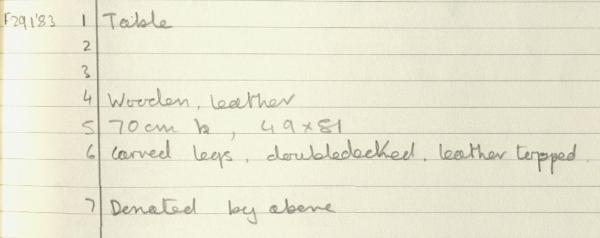 F291'83 1 Table
2
3
4 Wooden, leather
5 70cm h, 49x81
6 Carved legs, doubledecked, leather topped.
7 Donated by above